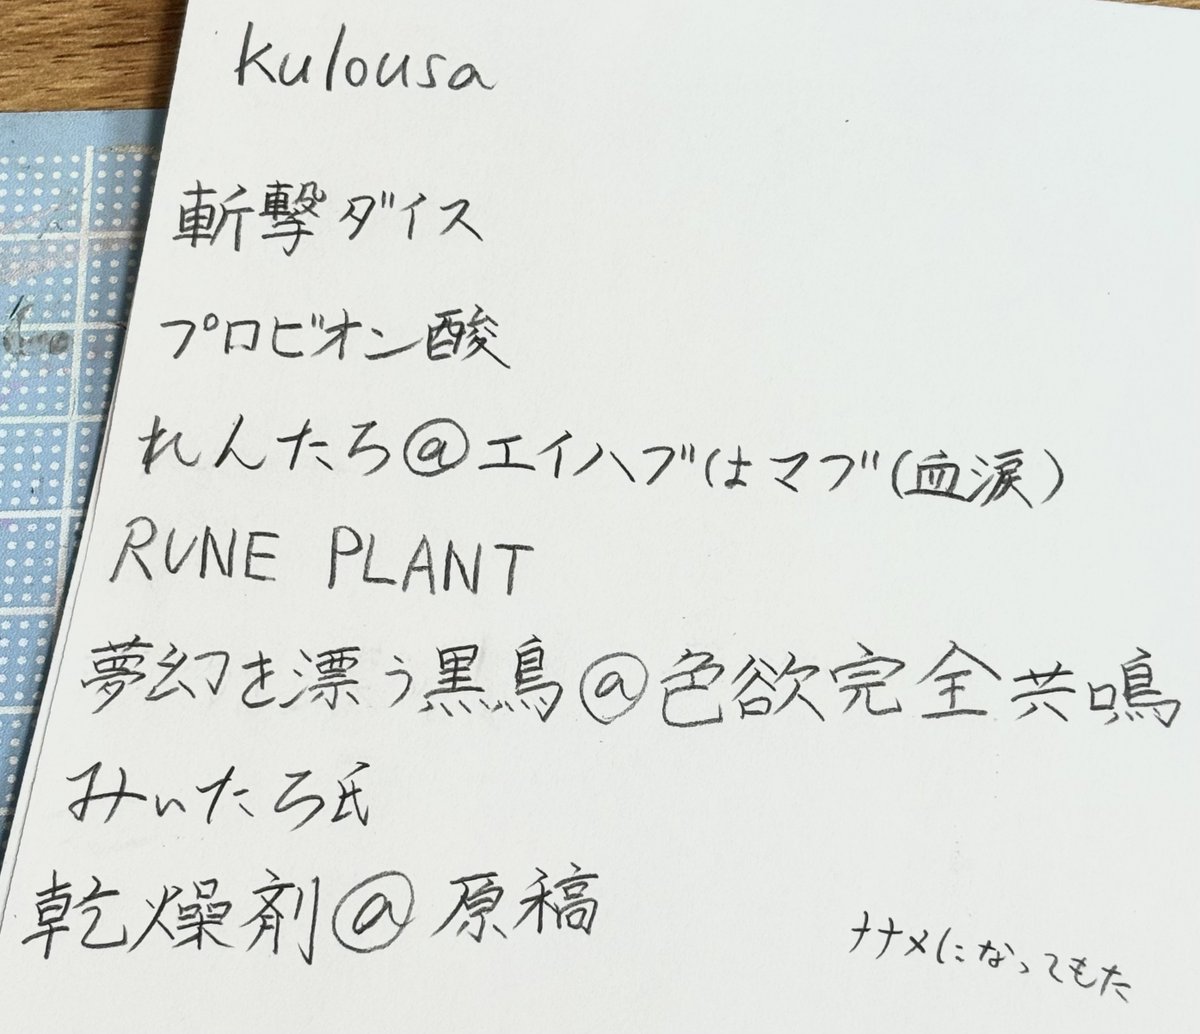 kulousa
斬撃ダイス
プロビオン酸
れんたろ@エイハブはマブ(血涙)
RUNE PLANT
夢幻を漂う黒鳥@色欲完全共鳴
みぃたろ氏
乾燥剤@原稿
ナナメになってもた